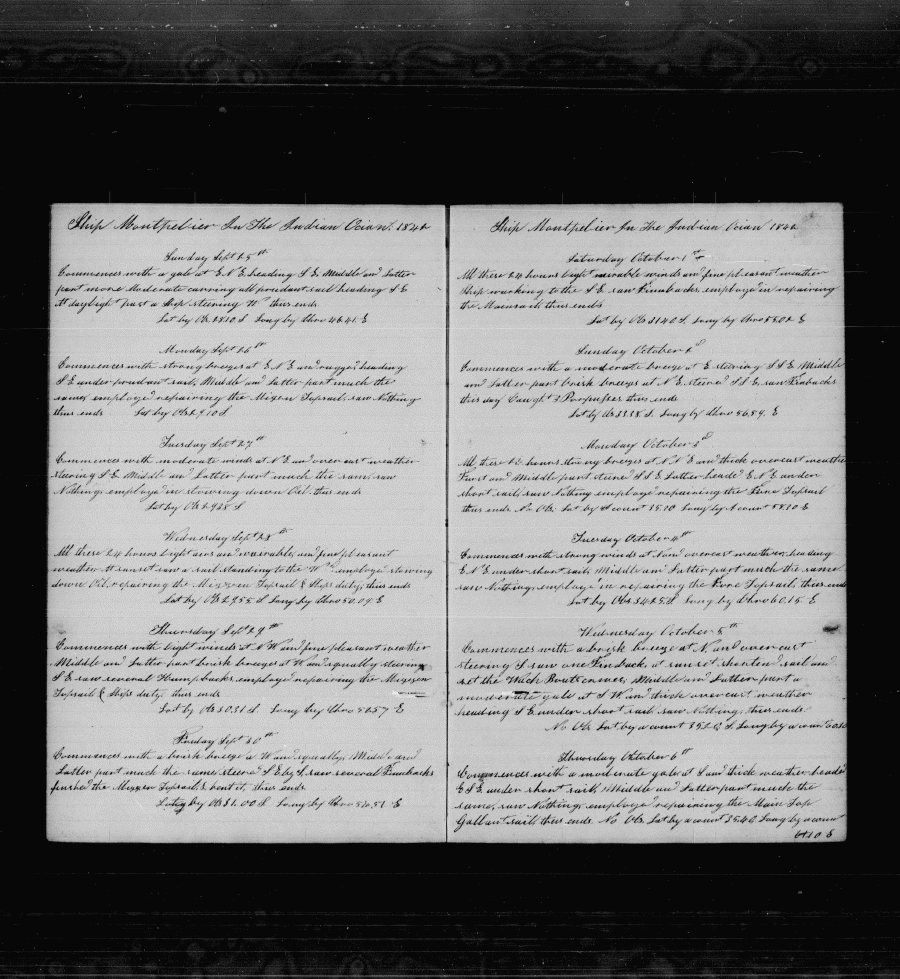 Ship Montpelier In The Indian Ocian. 1842
Sunday Sept 25th
Commences with a gale at E N E heading S E Middle and Latter
part more Moderate carving all prudant sail heading S E
At daylight part a Ship steering W thus ends
Lat by Obs 28.10 S Long by Chro 46.41 E
Monday Sept 26th
Commences with strong breezes at E N E and rugged heading
S E under prudant sail, Middle and Latter part much the
same, employed repairing the Mizen Topsail saw Nothing
thus ends Lat by Obs 29.10 S
Tuesday Sept 27th
Commences with moderate winds at N E and over cast weather
steering S E Middle and Latter part much the same saw
Nothing employed in stowing down Oil thus ends
Lat by Obs 29.28 S
Wednesday Sept 28th
All these 24 hours light airs and vairable, and fine pleasant
weather At sunset saw a sail standing to the Wd employed stowing
down Oil, repairing the Mizzen Topsail & Ships duty, thus ends
Lat by Obs 29.55 S Long by Chro 50.09 E
Thursday Sept 29th
Commences with light winds at N W and fine pleasant weather
Middle and Latter part brisk breezes at W and squally steering
S E saw several Humpbacks employed repairing the Mizzen
Topsail & Ships duty, thus ends
Lat by Obs 30.31 S Long by Chro 52.57 E
Friday Sept 30th
Commences with a brisk breeze a W and squally, Middle and
Latter part much the same steered S E by S, saw several Finnbacks
finished the Mizzen Topsail & bent it, thus ends
Lat by Obs 31.00 S Long by Chro 54.51 E
Ship Montpelier In The Indian Ocian 1842
Saturday October 1st
All these 24 hours light vairable winds and fine pleasant weather
Ship working to the S E saw Finnbacks employed in repairing
the Mainsail thus ends
Lat by Obs 31.40 S Long by Chro 55.02 E
Sunday October 2d
Commences with a moderate breeze at E steering S S E Middle
and Latter part brisk breezes at N E steered S S E, saw Finbacks
this day Caught 3 Porpusses thus ends
Lat by Obs 33.38 S Long by Chro 56.59 E
Monday October 3d
All these 24 hours strong breezes at N N E and thick overcast weather
First and Middle part steered S S E Latter headed E N E under
short sail, saw Nothing employed repairing the Fore Topsail
thus ends No Obs Lat by Acount 35.10 Long by Acount 58.10 E
Tuesday October 4th
Commences with strong winds at N and overcast weather, heading
E N E under short sail Middle and Latter part much the same
saw Nothing, employed in repairing the Fore Topsail, thus ends
Lat by Obs 34.25 S Long by Chro 60.15 E
Wednesday October 5th
Commences with a brisk breeze at N and overcast
steering S saw one Finback at sunset shortened sail and
set the Wach Boats crewes, Middle and Latter part a
moderate gale at S W and thick overcast weather
heading S E under short sail saw Nothing thus ends.
No Obs Lat by acount 35.20 S Long by acount
Thursday October 6th
Commences with a moderate gale at S and thick weather headed
E S E under short sail Middle and Latter part much the
same, saw Nothing, employed repairing the Main Top
Gallant sail, thus ends No Obs Lat by acount 35.40 Long by acount